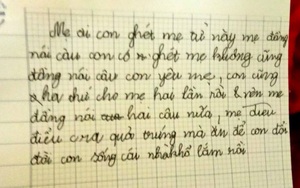 Mẹ ơi con ghét mẹ từ này mẹ đừng
nói câu con có ghét mẹ không cũng
đừng nói câu con yêu mẹ, con cũng
tha thứ cho mẹ hai lần rồi nên mẹ
đừng nói hai câu nữa, mẹ
điều ra quá trưng mà để con đổi
đời con sống cái khổ lắm rồi